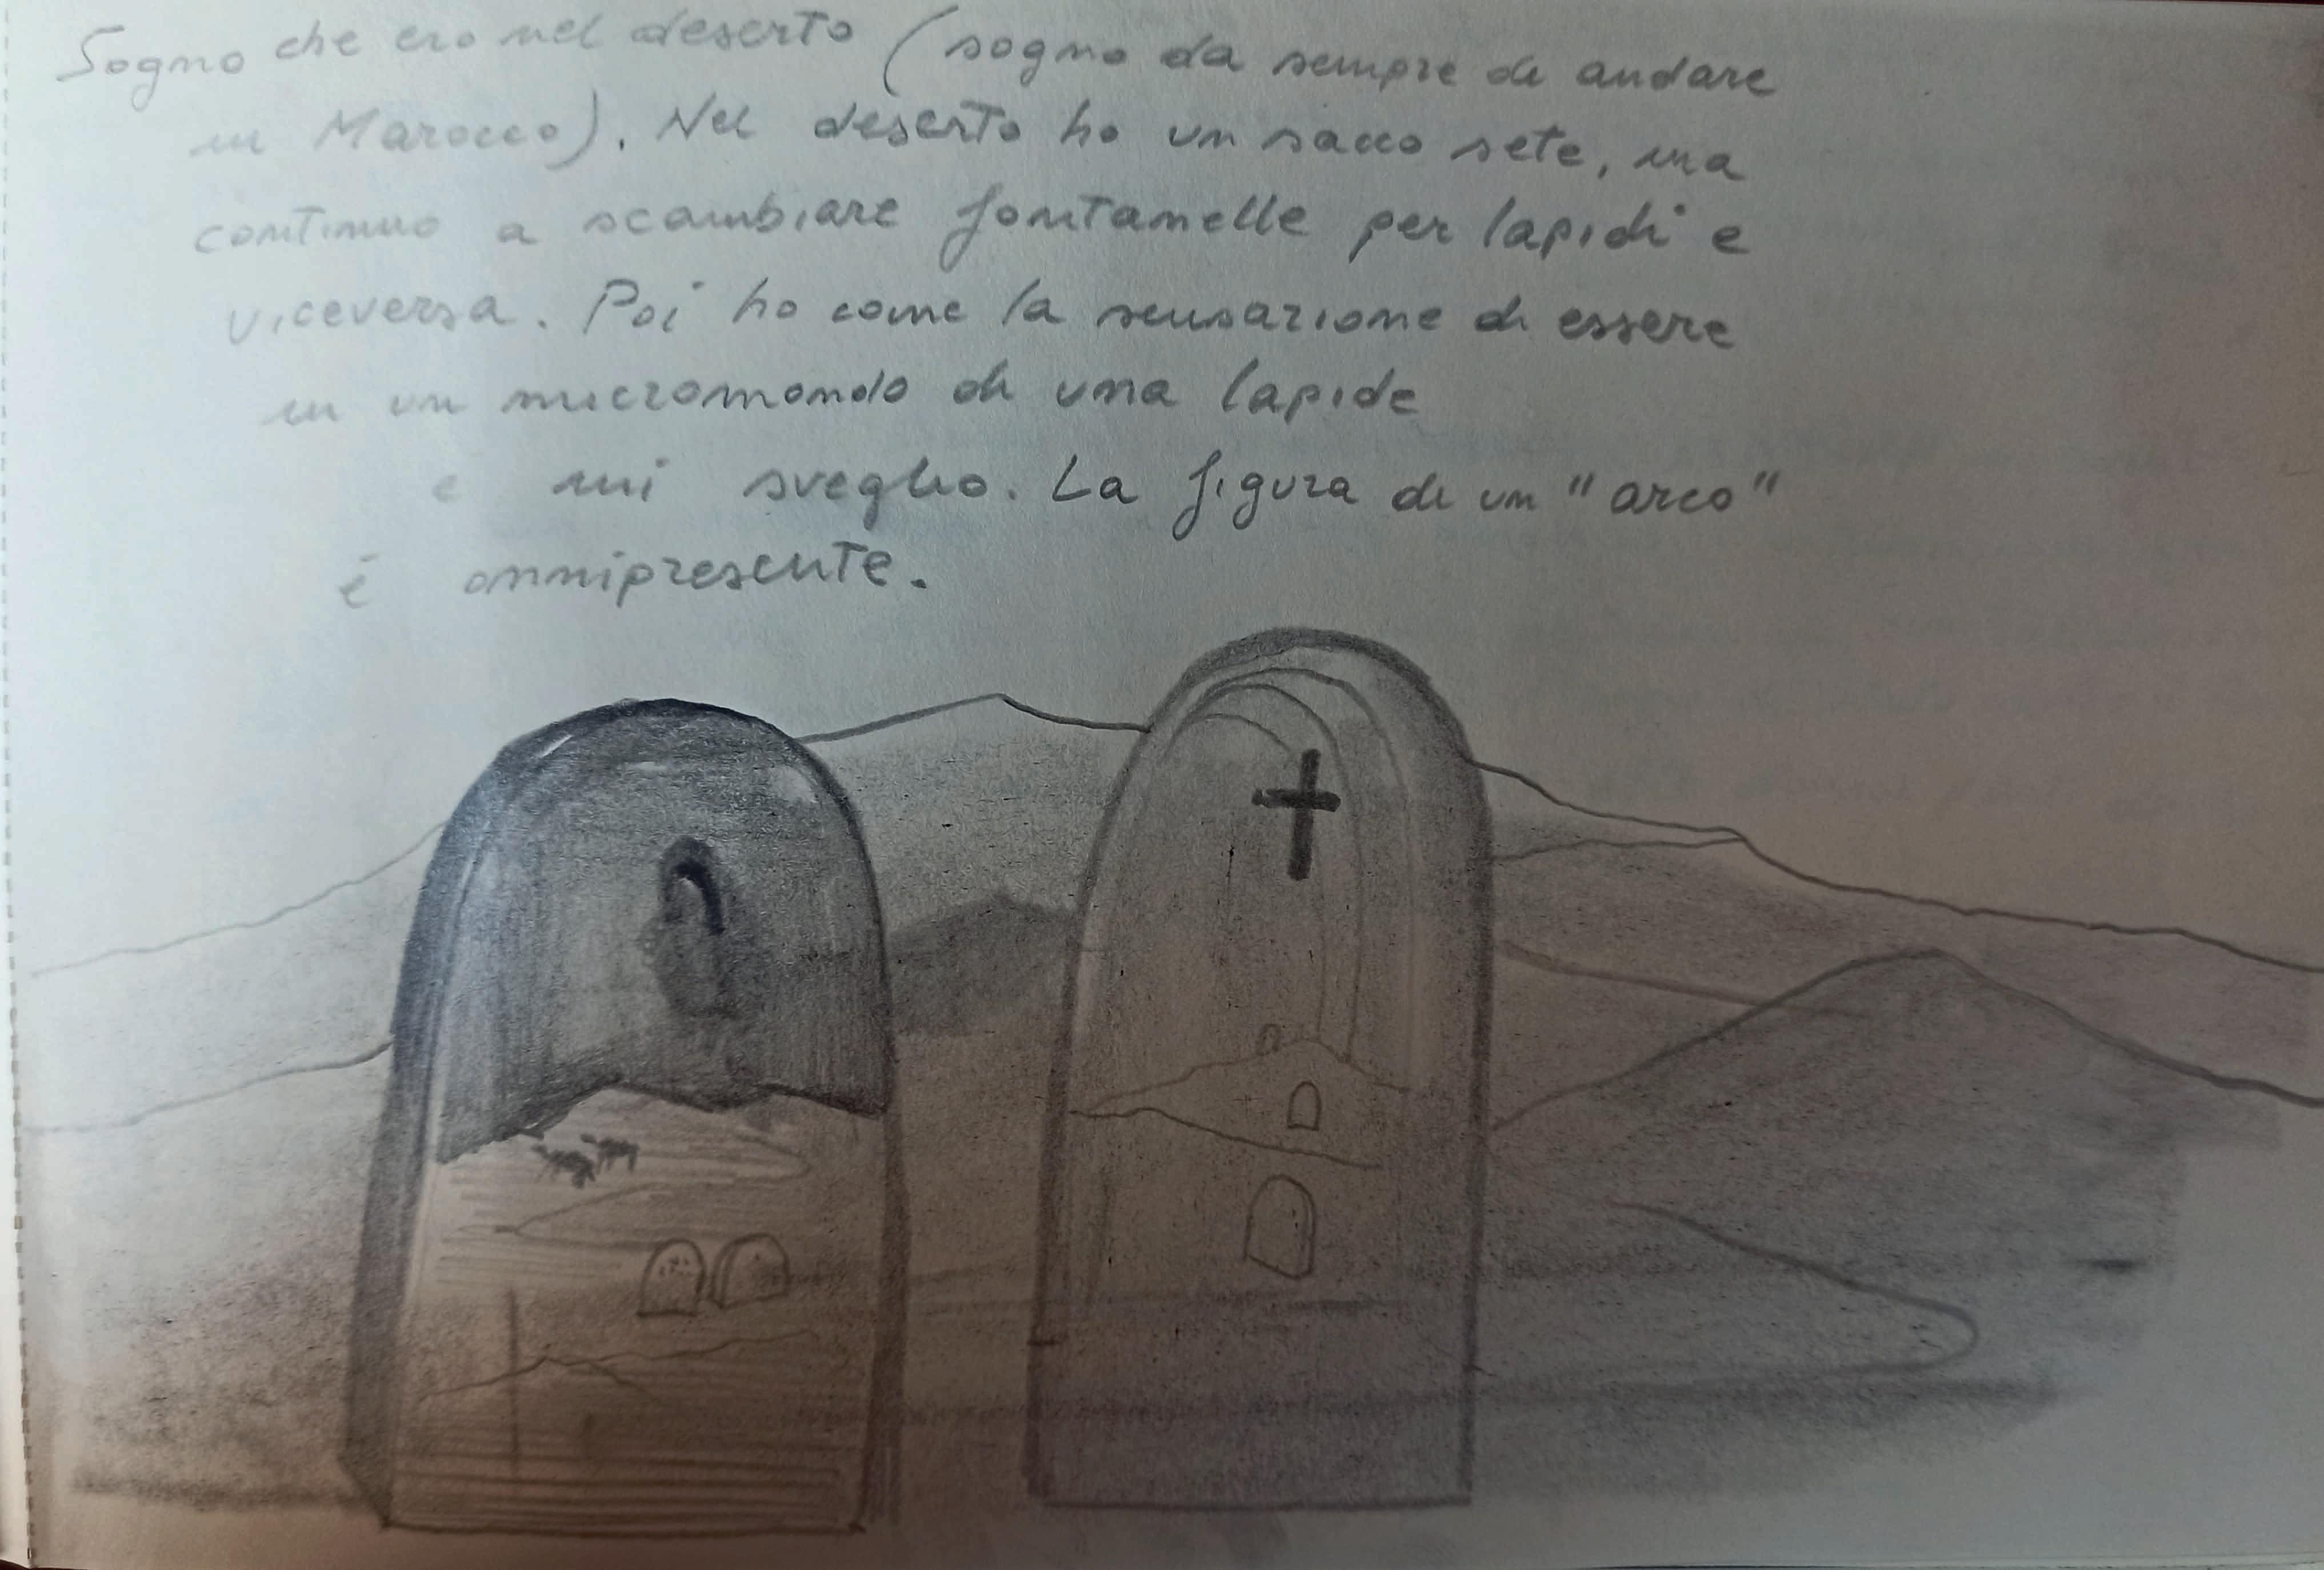 Sogno che ero nel deserto (sogno da sempre di andare
in Marocco). Nel deserto ho un sacco sete, ma
continuo a scambiare fontanelle per lapidi e
viceversa. Poi ho come la sensazione di essere
in un micromondo di una lapide
e mi sveglio. La figura di un "arco"
è onnipresente.